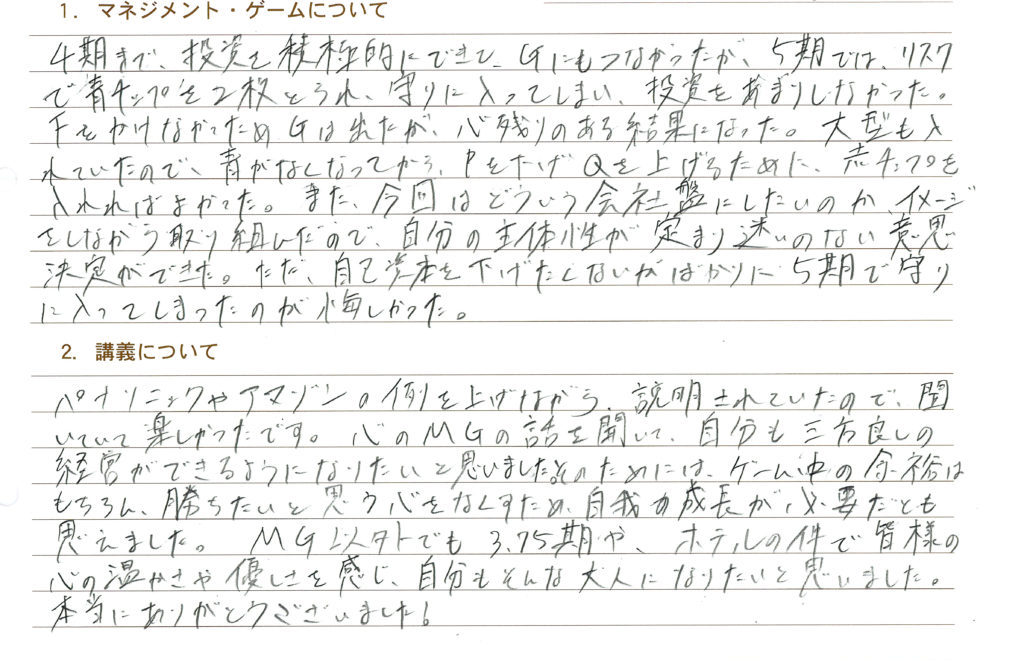 1. マネジメント・ゲームについて
4期まで、投資を積極的にできて、Gにもつながったが、5期では、リスク
で青チップを2枚とられ、守りに入ってしまい、投資をあまりしなかった。
Fをかけなかったため Gは出たが、心残りのある結果になった。大型も入
れていたので、青がなくなってから、Pを下げ Qを上げるために、赤チップを
入れればよかった。また、今回はどういう会社盤にしたいのか、イメージ
をしながら取り組んだので、自分の主体性が定まり迷いのない意思
決定ができた。ただ、自己資本を下げたくないがばかりに5期で守り
に入ってしまったのが悔しかった。
2. 講義について
パナソニックやアマゾンの例を上げながら、説明されていたので、聞
いていて楽しかったです。心のMGの話を聞いて、自分も三方良しの
経営ができるようになりたいと思いました。そのためには、ゲーム中の余裕は
もちろん、勝ちたいと思う心をなくすため、自我の成長が必要だとも
思えました。 MG以外でも3.75期や、ホテルの件で皆様の
心の温かさや優しさを感じ、自分もそんな大人になりたいと思いました。
本当にありがとうございました!